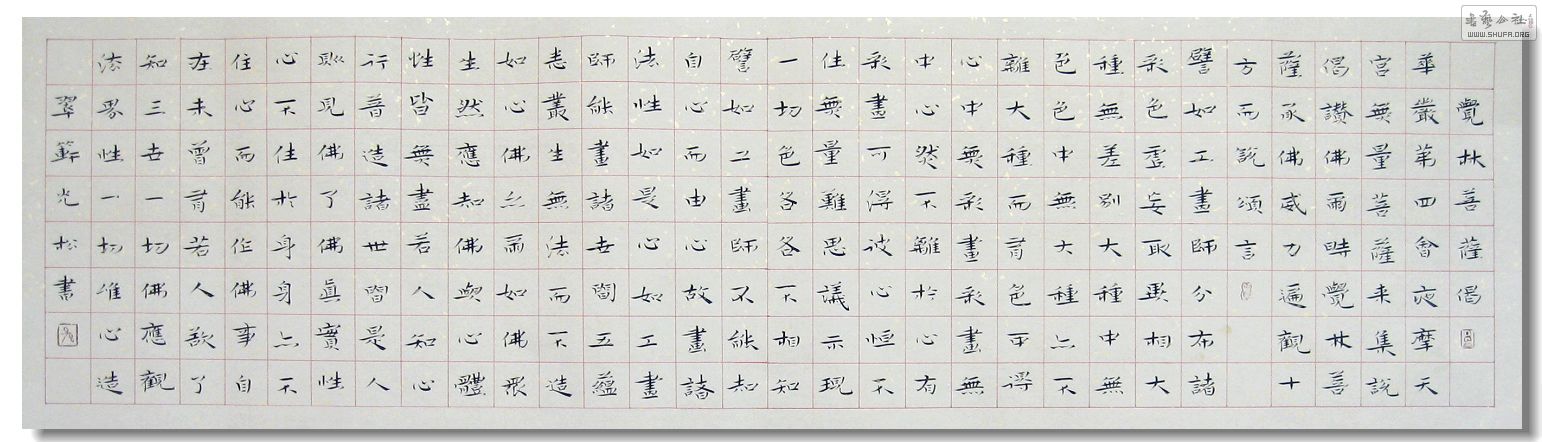 覺林菩薩偈
華嚴第四會夜摩天
宮無量菩薩来集說
偈讚佛爾時覺林菩
薩承佛威力遍觀十
方而說頌言
譬如工畫師分布諸
彩色虛妄取異相大
種無差別大種中無
色色中無大種亦不
離大種而有色可得
心中無彩畫彩畫無
中心然不離於心有
彩畫可得彼心恒不
住無量難思議示現
一切色各各不相知
譬如工畫師不能知
自心而由心故畫諸
法性如是心如工畫
師能畫諸世間五蘊
悉叢生無法而不造
如心佛亦爾如佛眾
生然應知佛與心體
性皆無盡若人知心
行普造諸世間是人
耿見佛了佛真實性
心不住於身身亦不
住心而能作佛事自
在未曾有若人欲了
知三世一切佛應觀
法界性一切唯心造
翠光松書
书艺公社
WWW.SHUFA.ORG